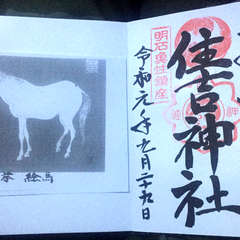 住吉神社
明石魚住鎮座
令和元年九月二十九日
絵馬